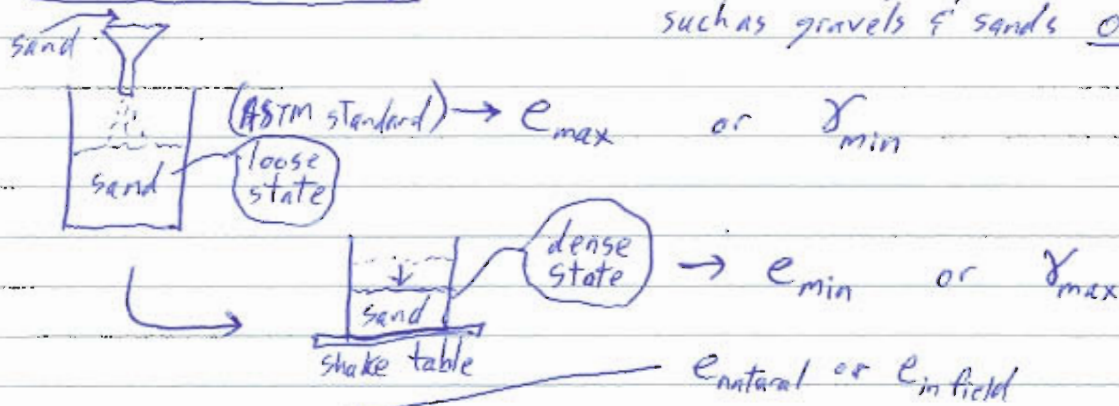 such as gravels & sands
sand
(ASTM standard) → e max or γ min
loose
state
sand
dense
state
→ e min or γ max
sand
shake table
e natural or e in field